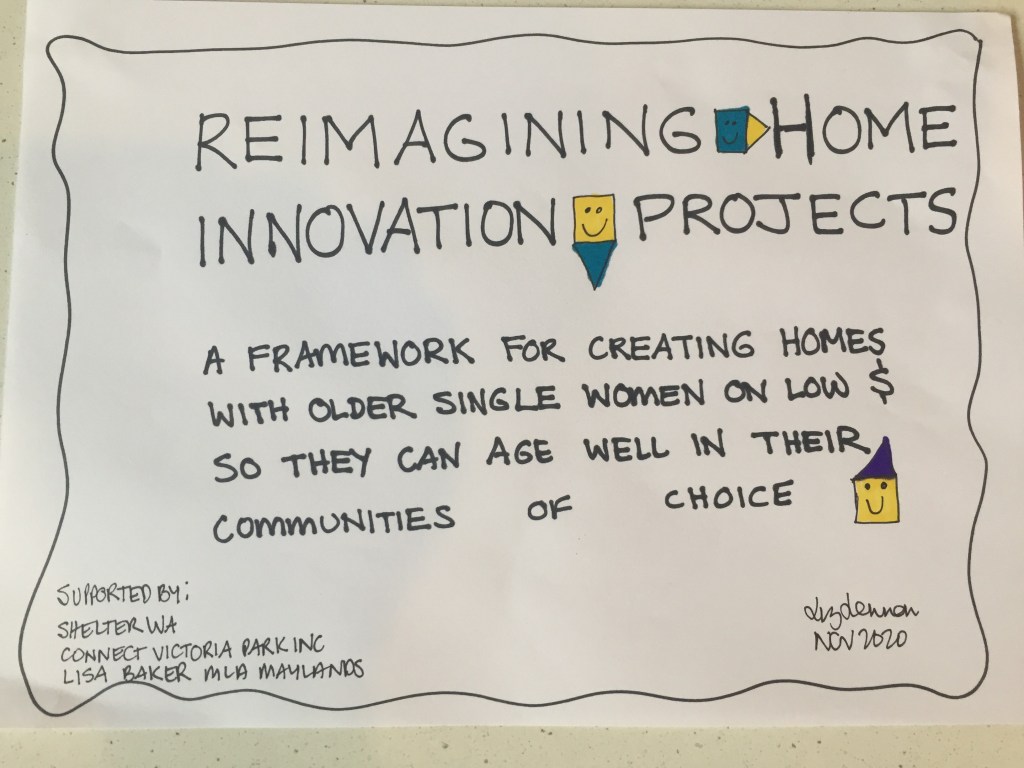 REIMAGINING HOME
INNOVATION PROJECTS
A FRAMEWORK FOR CREATING HOMES
WITH OLDER SINGLE WOMEN ON LOW $
SO THEY CAN AGE WELL IN THEIR
COMMUNITIES OF CHOICE
SUPPORTED BY:
SHELTER WA
CONNECT VICTORIA PARK INC
LISA BAKER MLA MAYLANDS
Lizdennon
NOV 2020